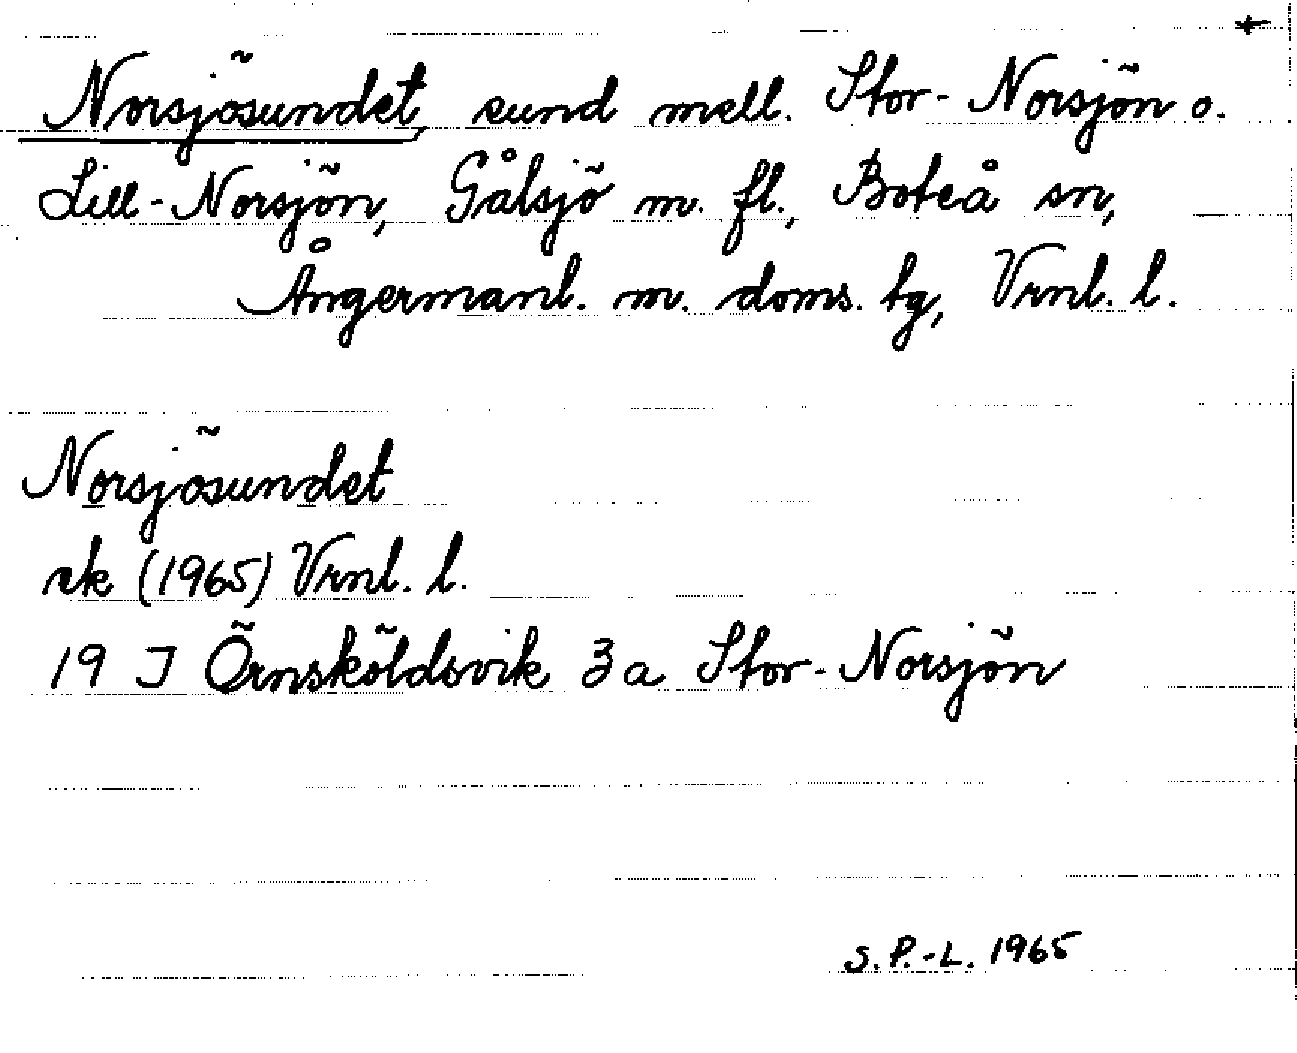 Norsjösundet, sund mell. Stor-Norsjön o.
Lill-Norsjön, Gålsjö m. fl., Boteå sn,
Ångermanl. m. doms. tg, Vrnl. l.
Norsjösundet
rk (1965) Vrnl. l.
19 J Örnsköldsvik 3a Stor-Norsjön
S. P.-L. 1965